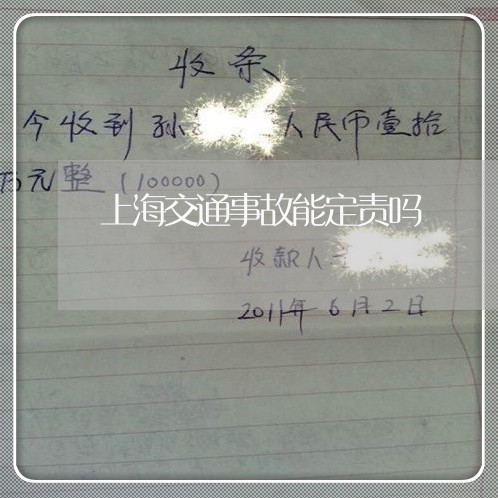 收条
今收到孙人民币壹拾
万元整(100000)
上海交通事故能定责吗
收款人
2011年6月2日